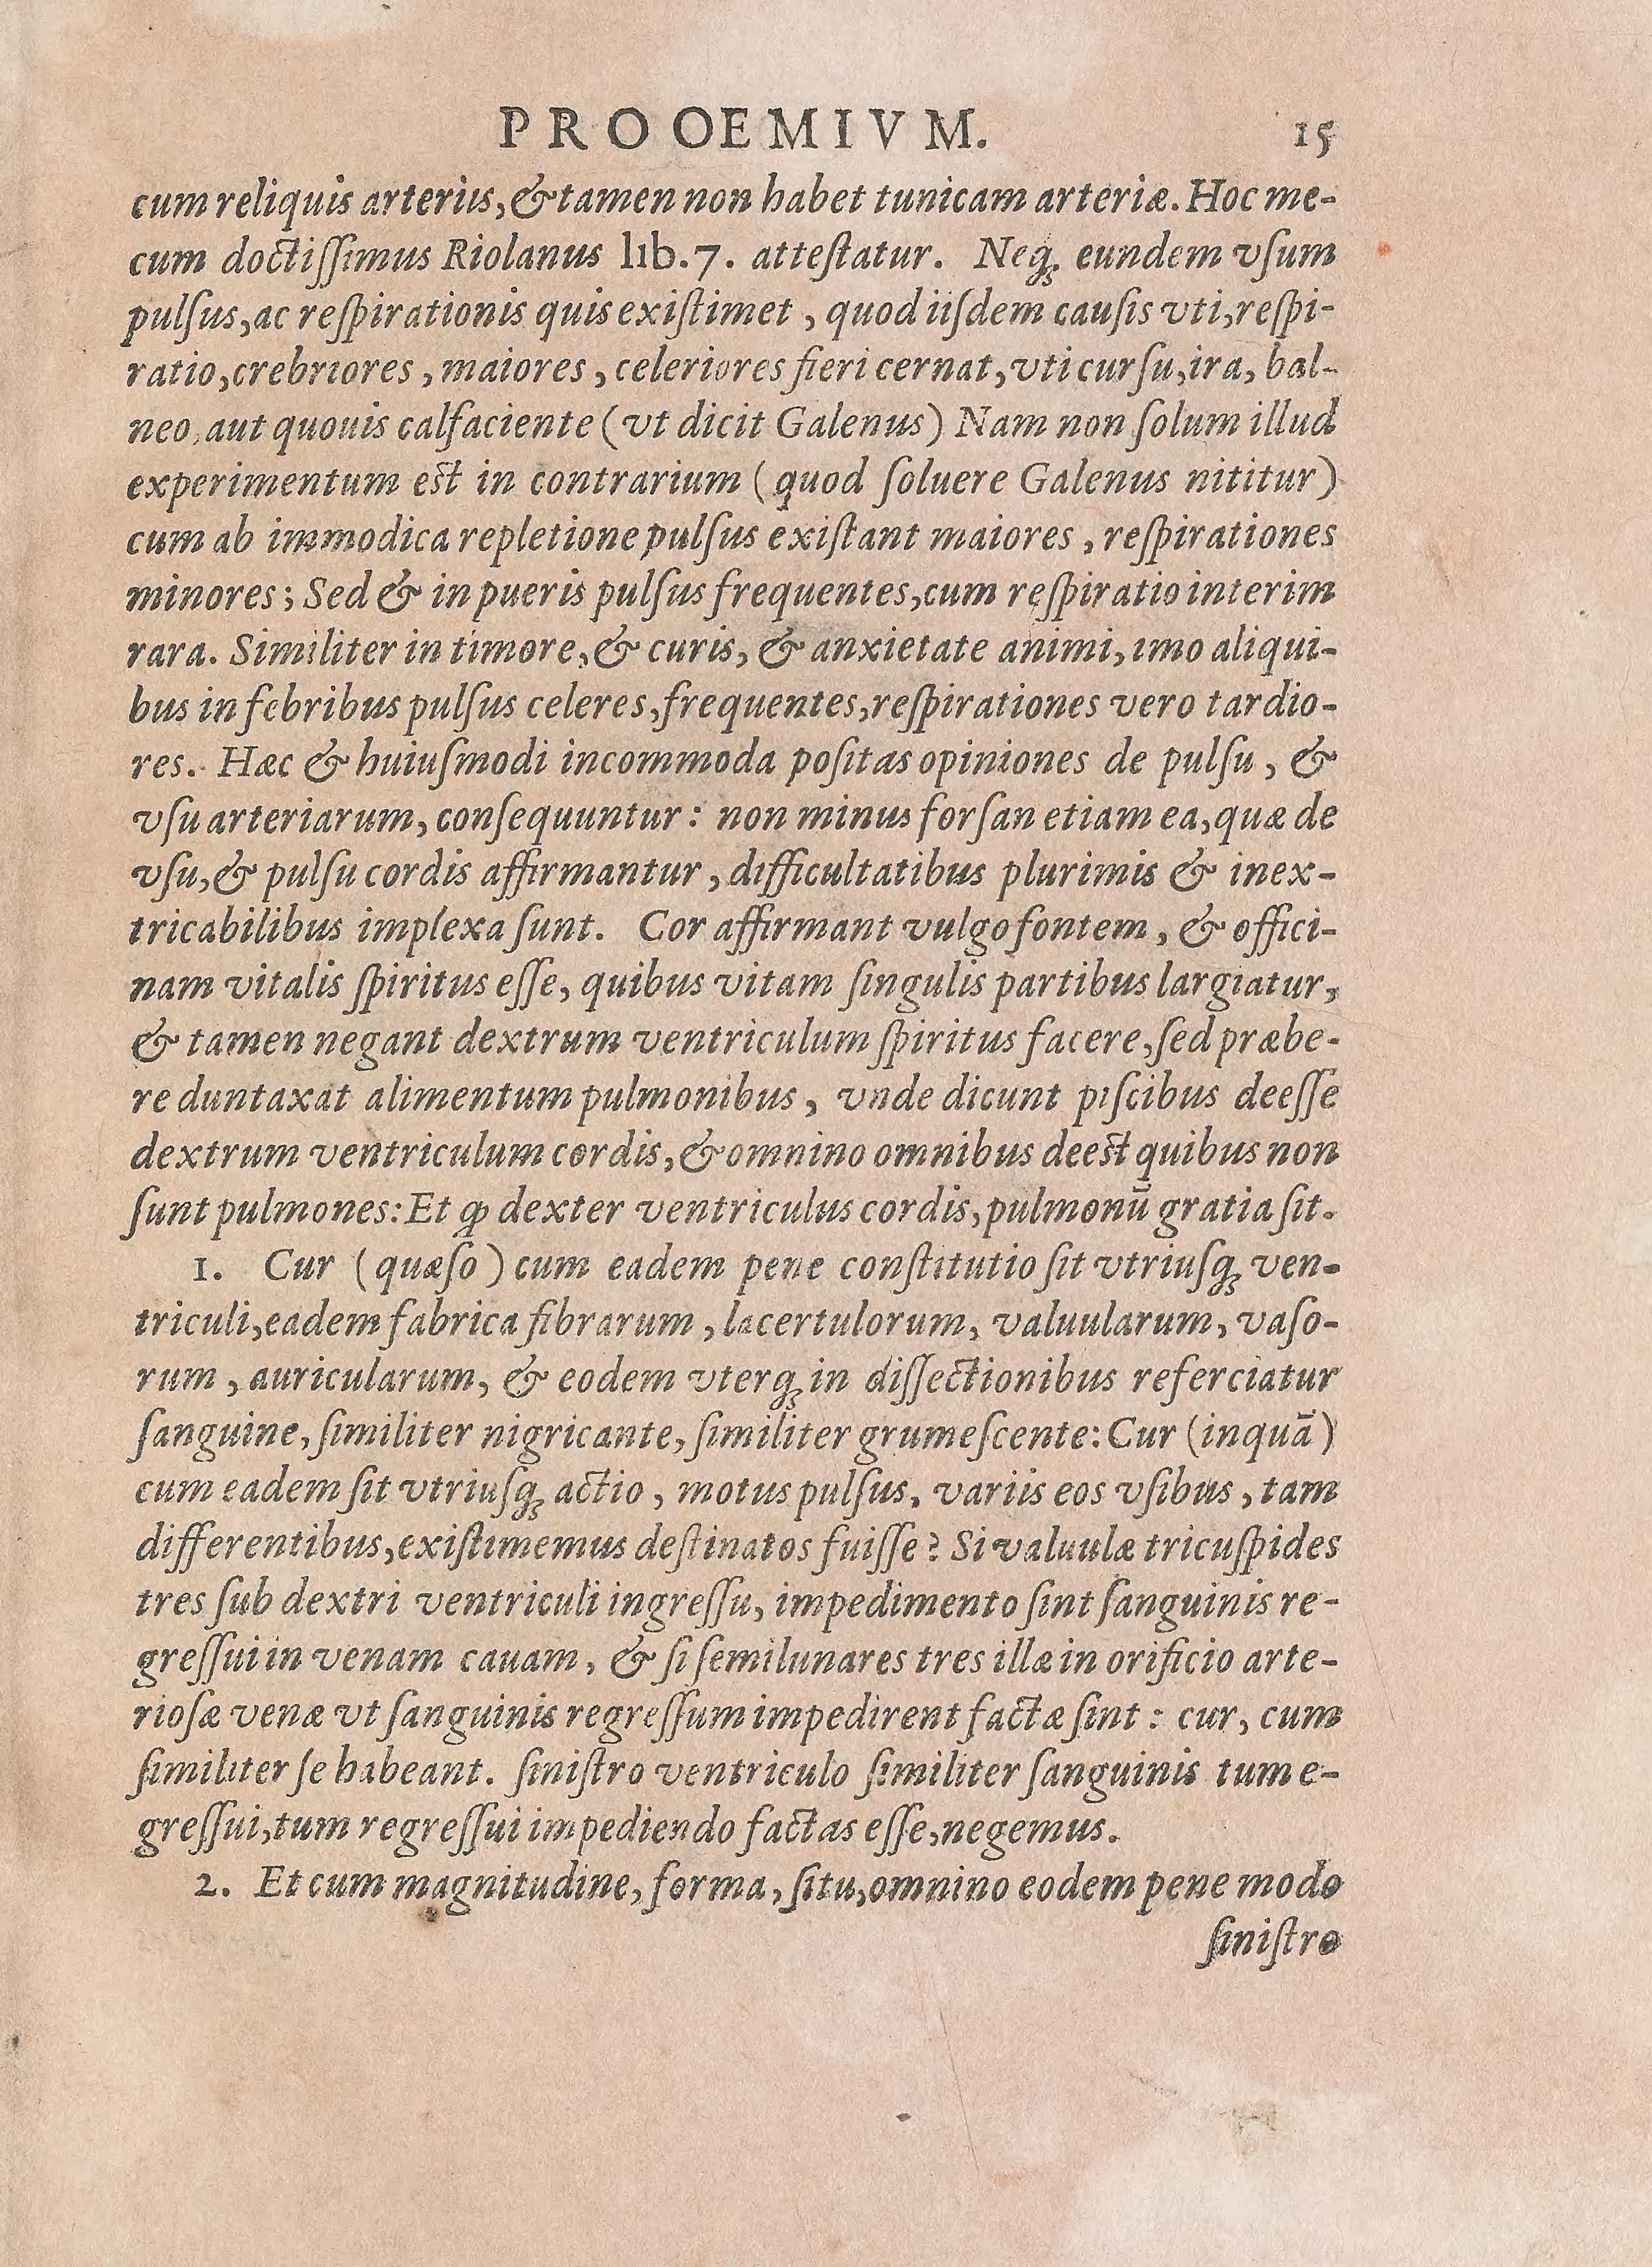 PROOEMIVM. 15
cum reliquis arteriis, & tamen non habet tunicam arteriæ. Hoc me-
cum doctiſſimus Riolanus lib. 7. atteſtatur. Neq; eundem vſum
pulſus, ac reſpirationis quis exiſtimet, quod iiſdem cauſis vti, reſpi-
ratio, crebriores, maiores, celeriores fieri cernat, vti curſu, ira, bal-
neo, aut quouis calfaciente (vt dicit Galenus) Nam non ſolum illud
experimentum eſt in contrarium (quod ſoluere Galenus nititur)
cum ab immodica repletione pulſus exiſtant maiores, reſpirationes
minores; Sed & in pueris pulſus frequentes, cum reſpiratio interim
rara. Similiter in timore, & curis, & anxietate animi, imo aliqui-
bus in febribus pulſus celeres, frequentes, reſpirationes vero tardio-
res. Hæc & huiuſmodi incommoda poſitas opiniones de pulſu, &
vſu arteriarum, conſequuntur: non minus forſan etiam ea, quæ de
vſu, & pulſu cordis affirmantur, difficultatibus plurimis & inex-
tricabilibus implexa ſunt. Cor affirmant vulgo fontem, & offici-
nam vitalis ſpiritus eſſe, quibus vitam ſingulis partibus largiatur,
& tamen negant dextrum ventriculum ſpiritus facere, ſed præbe-
re duntaxat alimentum pulmonibus, vnde dicunt piſcibus deeſſe
dextrum ventriculum cordis, & omnino omnibus deeſt quibus non
ſunt pulmones: Et ꝙ dexter ventriculus cordis, pulmonū gratia ſit.
1. Cur (quæſo) cum eadem pene conſtitutio ſit vtriuſq; ven-
triculi, eadem fabrica fibrarum, lacertulorum, valuularum, vaſo-
rum, auricularum, & eodem vterq; in diſſectionibus referciatur
ſanguine, ſimiliter nigricante, ſimiliter grumeſcente: Cur (inquā)
cum eadem ſit vtriuſq; actio, motus pulſus, variis eos vſibus, tam
differentibus, exiſtimemus deſtinatos fuiſſe? Si valuulæ tricuſpides
tres ſub dextri ventriculi ingreſſu, impedimento ſint ſanguinis re-
greſſui in venam cauam, & ſi ſemilunares tres illæ in orificio arte-
rioſæ venæ vt ſanguinis regreſſum impedirent factæ ſint: cur, cum
ſimiliter ſe habeant. ſiniſtro ventriculo ſimiliter ſanguinis tum e-
greſſui, tum regreſſui impediendo factas eſſe, negemus.
2. Et cum magnitudine, forma, ſitu, omnino eodem pene modo
ſiniſtro